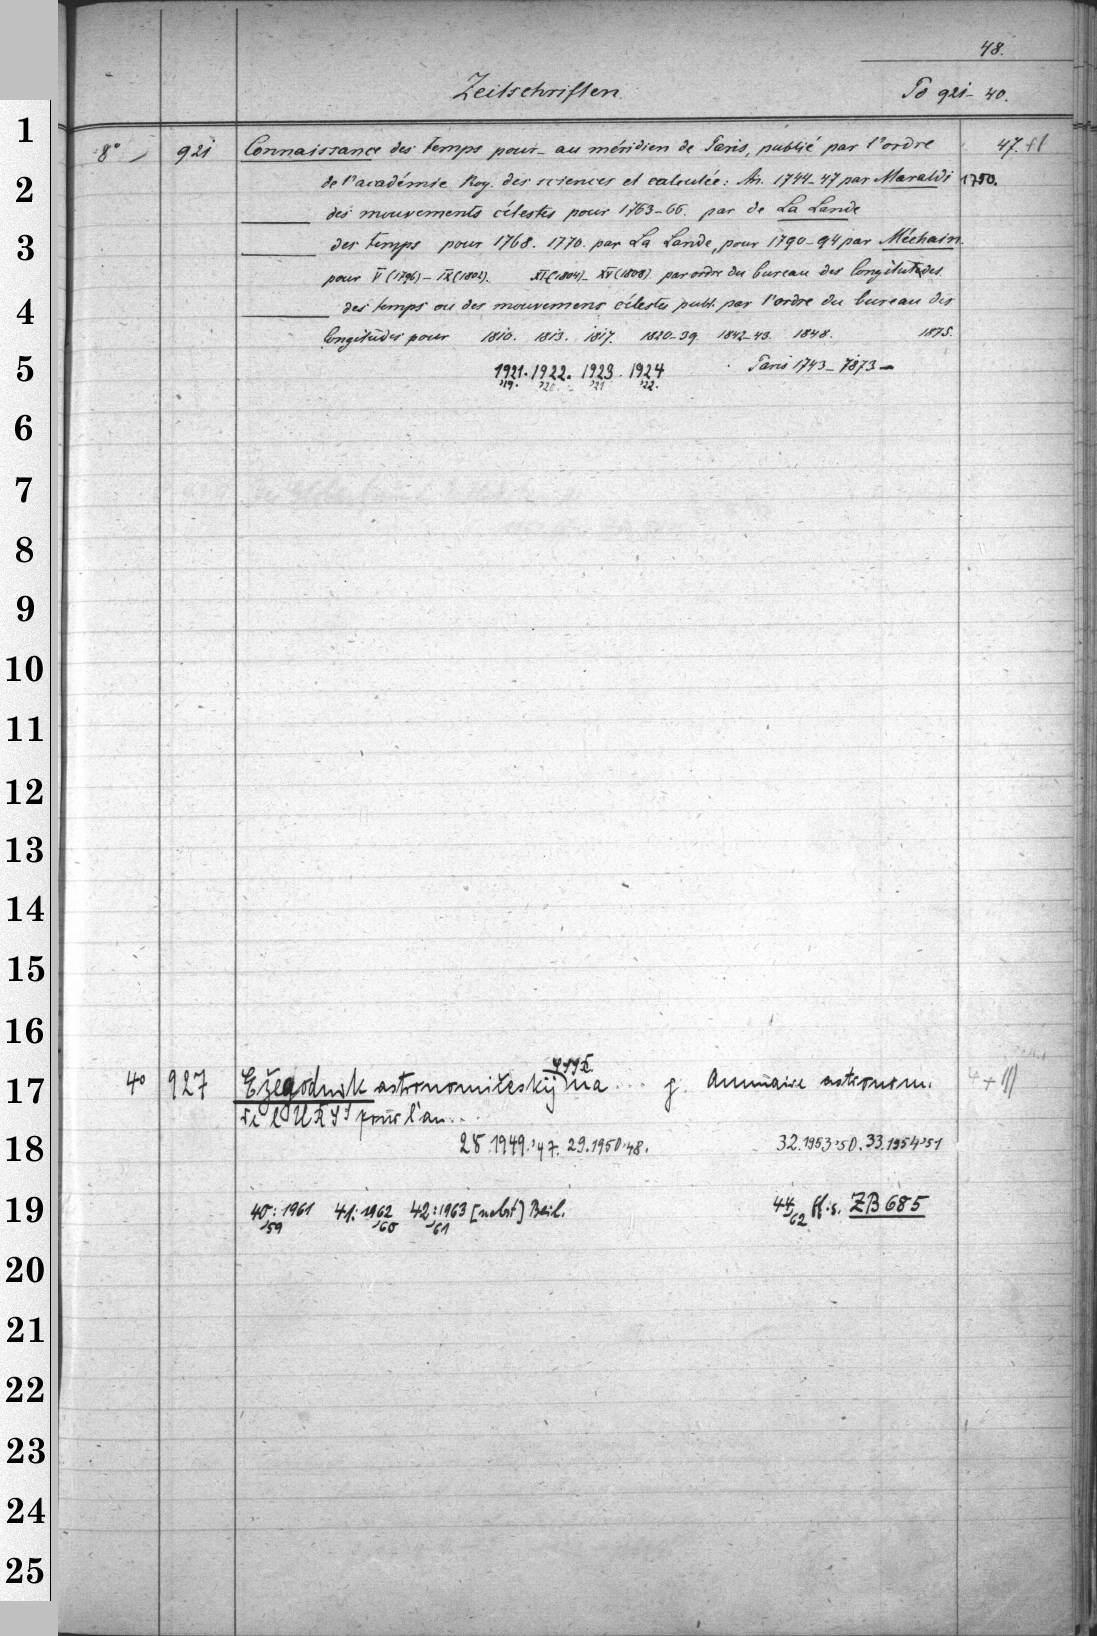 48.
Zeitschriften. Po 921–40.
8° 921 Connaissance des temps pour – au méridien de Paris, publié par l'ordre 47.
de l'académie Roy. des sciences et calculée: An. 1744–47 par Maraldi 1750.
des mouvements célestes pour 1763–66. par de La Lande
des temps pour 1768. 1770. par La Lande, pour 1790–94 par Méchain.
pour V (1796) – IX (1802). XI (1804) – XV (1808) par ordre du bureau des longitudes.
des temps ou des mouvemens célestes publ. par l'ordre du bureau des
longitudes pour 1810. 1813. 1817. 1820–39. 1842–43. 1848. 1875.
1921. 1922. 1923. 1924 Paris 1743– 1873–
'19. '20. '21 '22.
4° 927 Ežegodnik astronomičeskij SSSR na ... g. Annuaire astronom. 4+
de l'URSS pour l'an...
28.1949.'47. 29.1950.'48. 32.1953.'50. 33.1954.'51
40: 1961 41: 1962 42: 1963 [nebst] Beil. 44 ff. s. ZB 685
/59 /60 /61 /62
1
2
3
4
5
6
7
8
9
10
11
12
13
14
15
16
17
18
19
20
21
22
23
24
25